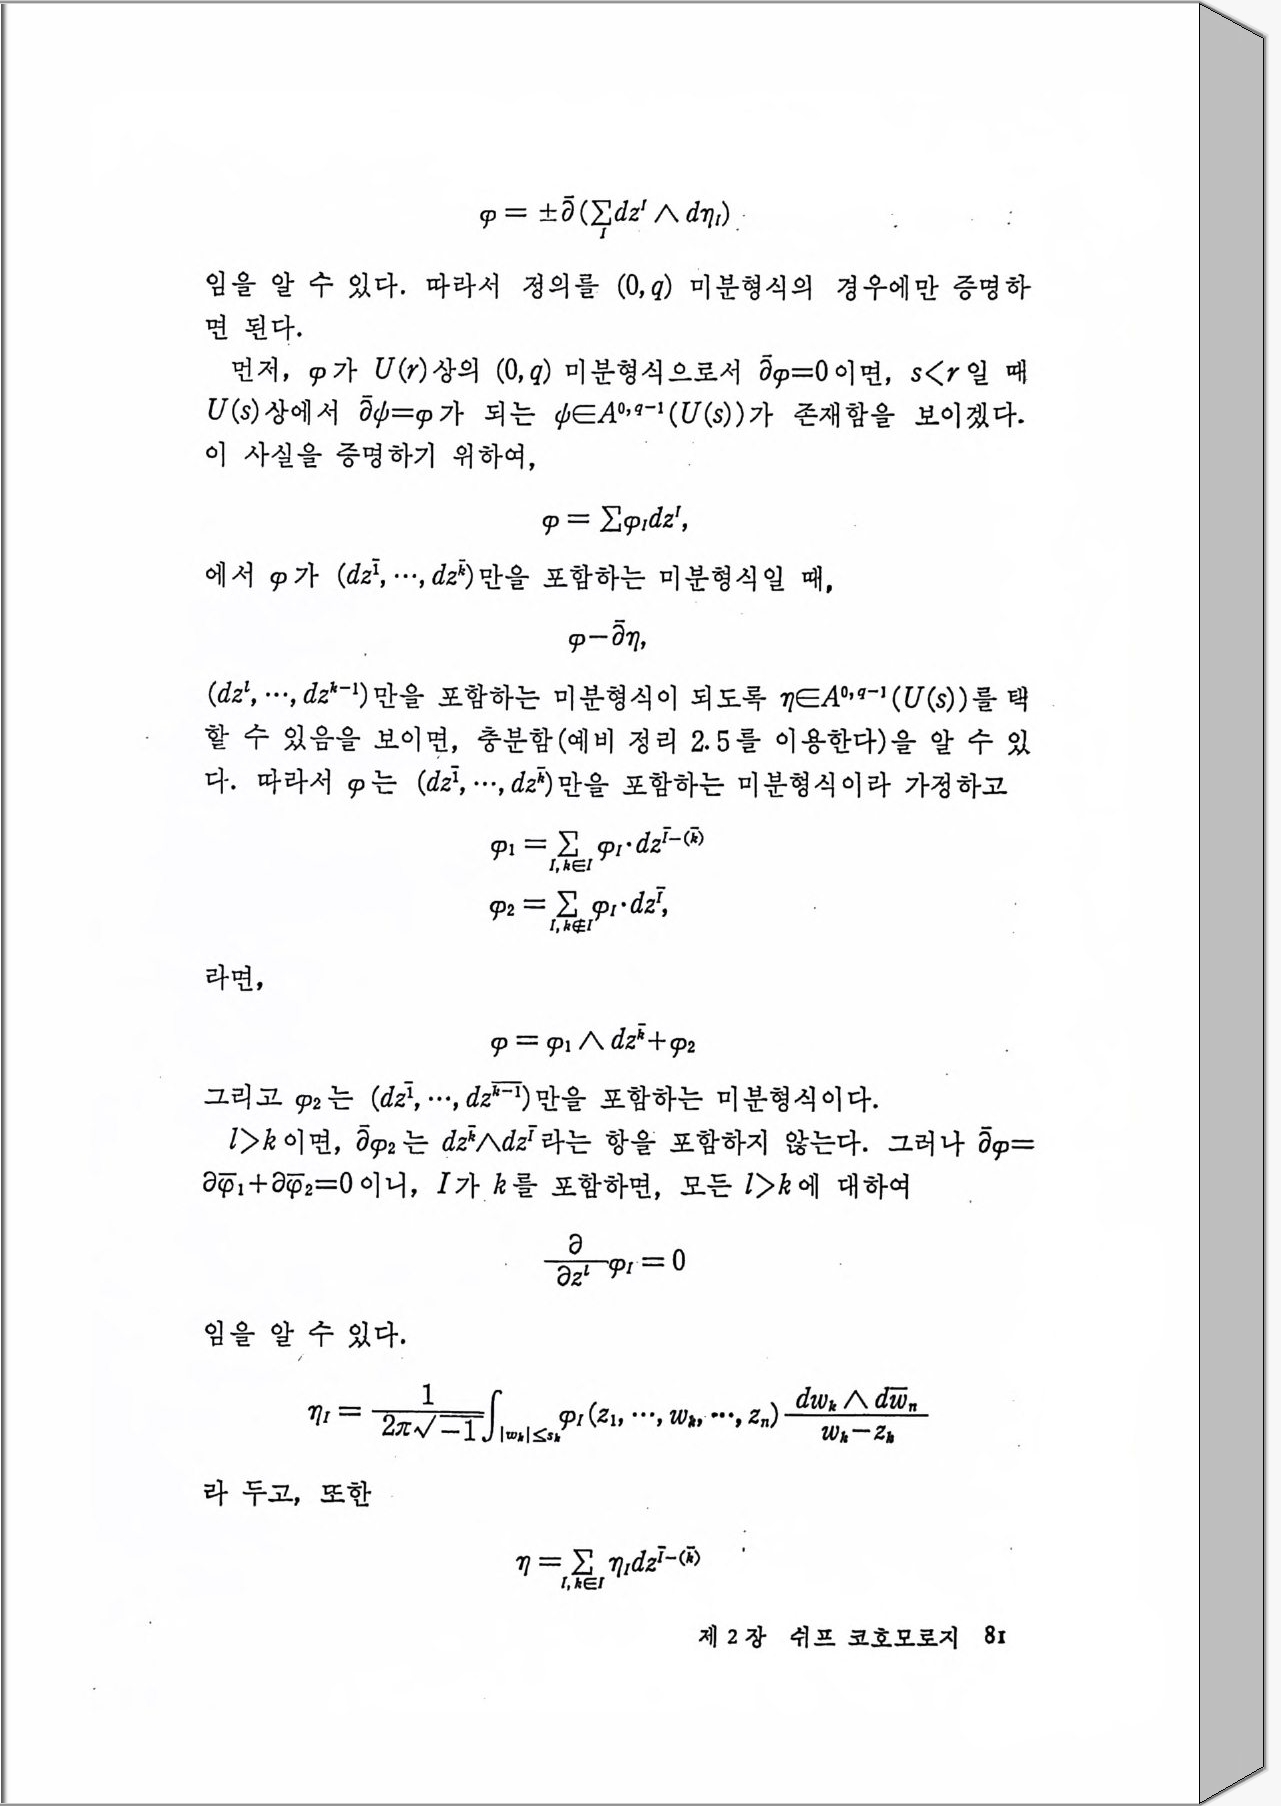 φ = ±∂̄(∑_I dz^I ∧ dη_I)
임을 알 수 있다. 따라서 정의를 (0, q) 미분형식의 경우에만 증명하
면 된다.
먼저, φ가 U(r)상의 (0, q) 미분형식으로서 ∂̄φ=0이면, s<r일 때
U(s)상에서 ∂̄ψ=φ가 되는 ψ∈A^{0,q-1}(U(s))가 존재함을 보이겠다.
이 사실을 증명하기 위하여,
φ = ∑φ_I dz^I,
에서 φ가 (dz^{1̄}, ⋯, dz^{k̄})만을 포함하는 미분형식일 때,
φ−∂̄η,
(dz^l, ⋯, dz^{k-1})만을 포함하는 미분형식이 되도록 η∈A^{0,q-1}(U(s))를 택
할 수 있음을 보이면, 충분함(예비 정리 2.5를 이용한다)을 알 수 있
다. 따라서 φ는 (dz^{1̄}, ⋯, dz^{k̄})만을 포함하는 미분형식이라 가정하고
φ_1 = ∑_{I, k∈I} φ_I·dz^{Ī-(k̄)}
φ_2 = ∑_{I, k∉I} φ_I·dz^{Ī},
라면,
φ = φ_1 ∧ dz^{k̄}+φ_2
그리고 φ_2는 (dz^{1̄}, ⋯, dz^{\overline{k-1}})만을 포함하는 미분형식이다.
l>k이면, ∂̄φ_2는 dz^{k̄}∧dz^{Ī}라는 항을 포함하지 않는다. 그러나 ∂̄φ=
∂φ̄_1+∂φ̄_2=0이니, I가 k를 포함하면, 모든 l>k에 대하여
\frac{∂}{∂z^l}φ_I = 0
임을 알 수 있다.
η_I = \frac{1}{2π√-1}∫_{|w_k|≤s_k} φ_I(z_1, ⋯, w_k, ⋯, z_n)\frac{dw_k ∧ dw̄_n}{w_k−z_k}
라 두고, 또한
η = ∑_{I, k∈I} η_I dz^{Ī-(k̄)}
제 2 장 쉬프 코호모로지 81